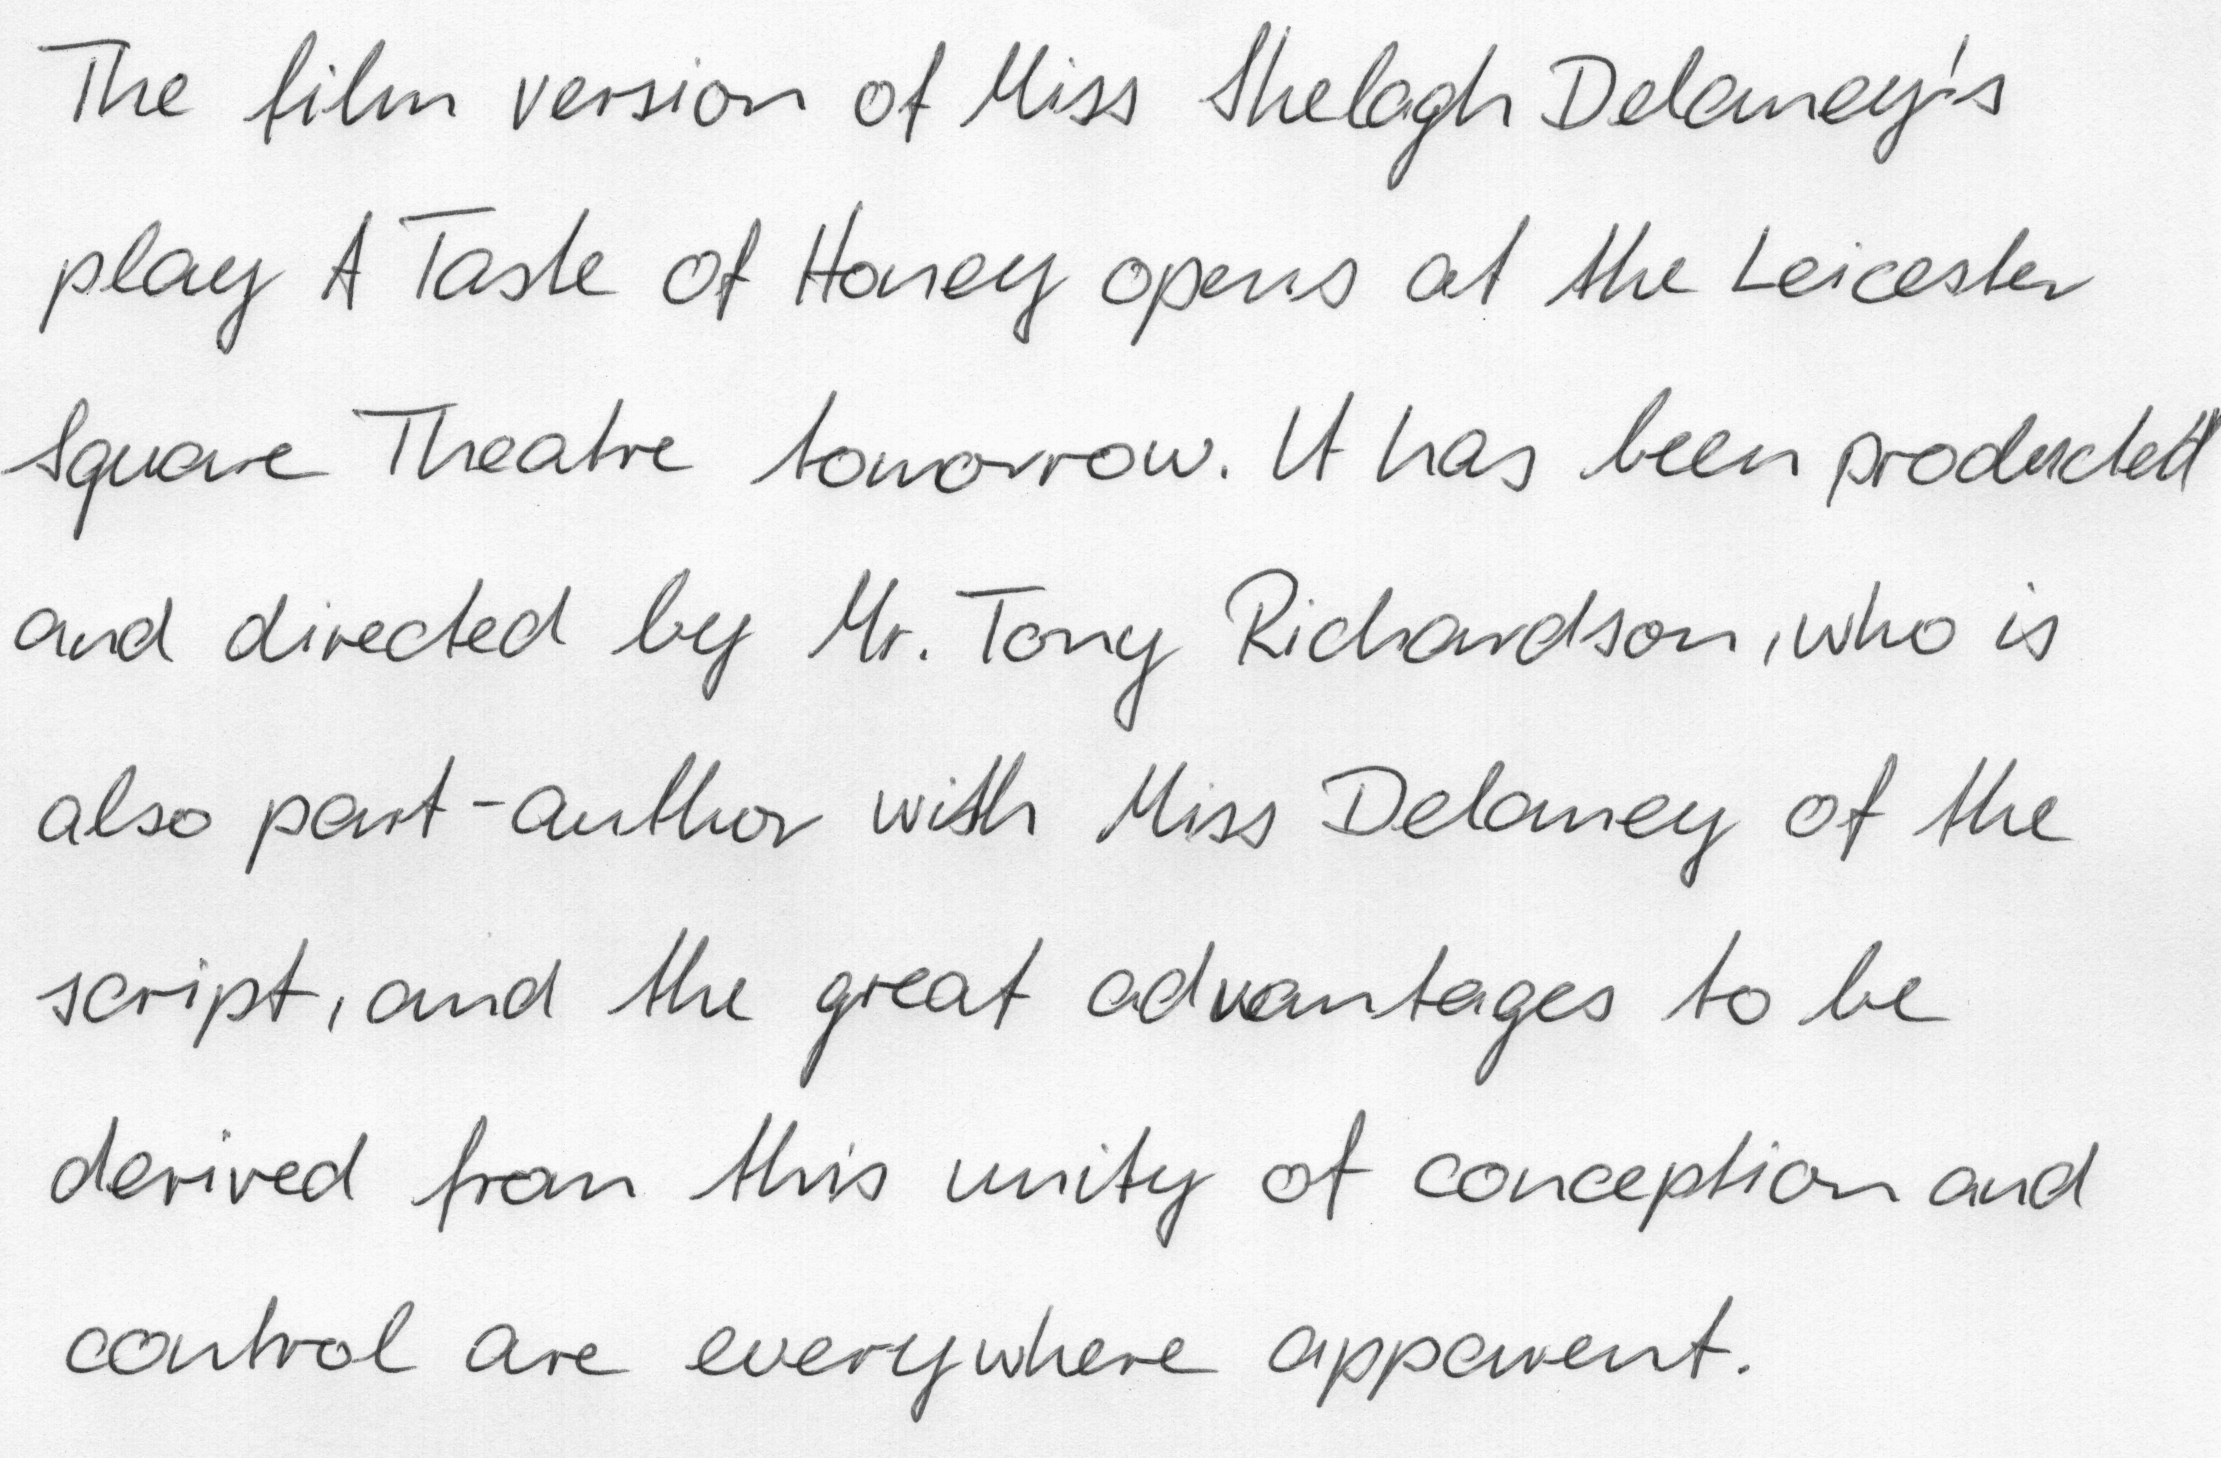 The film version of Miss Shelagh Delaney's
play A Taste of Honey opens at the Leicester
Square Theatre tomorrow. It has been producted
and directed by Mr. Tony Richardson, who is
also part-author with Miss Delaney of the
script, and the great advantages to be
derived from this unity of conception and
control are everywhere apparent.